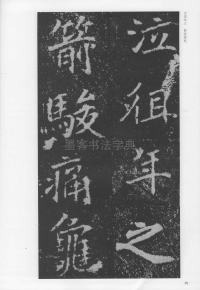 泣徂年之
箭駿痛龜
墨客书法字典